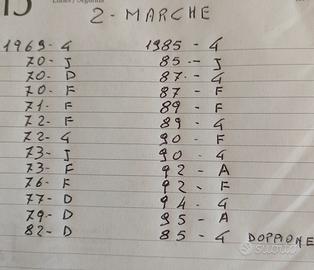 2 - MARCHE
1969 - G
70 - J
70 - D
70 - F
71 - F
72 - F
72 - G
73 - J
73 - F
76 - F
77 - D
79 - D
82 - D
1985 - G
85 - J
87 - G
87 - F
89 - F
89 - G
90 - F
90 - G
92 - A
92 - F
94 - G
95 - A
85 - G DOPPIONE
subito